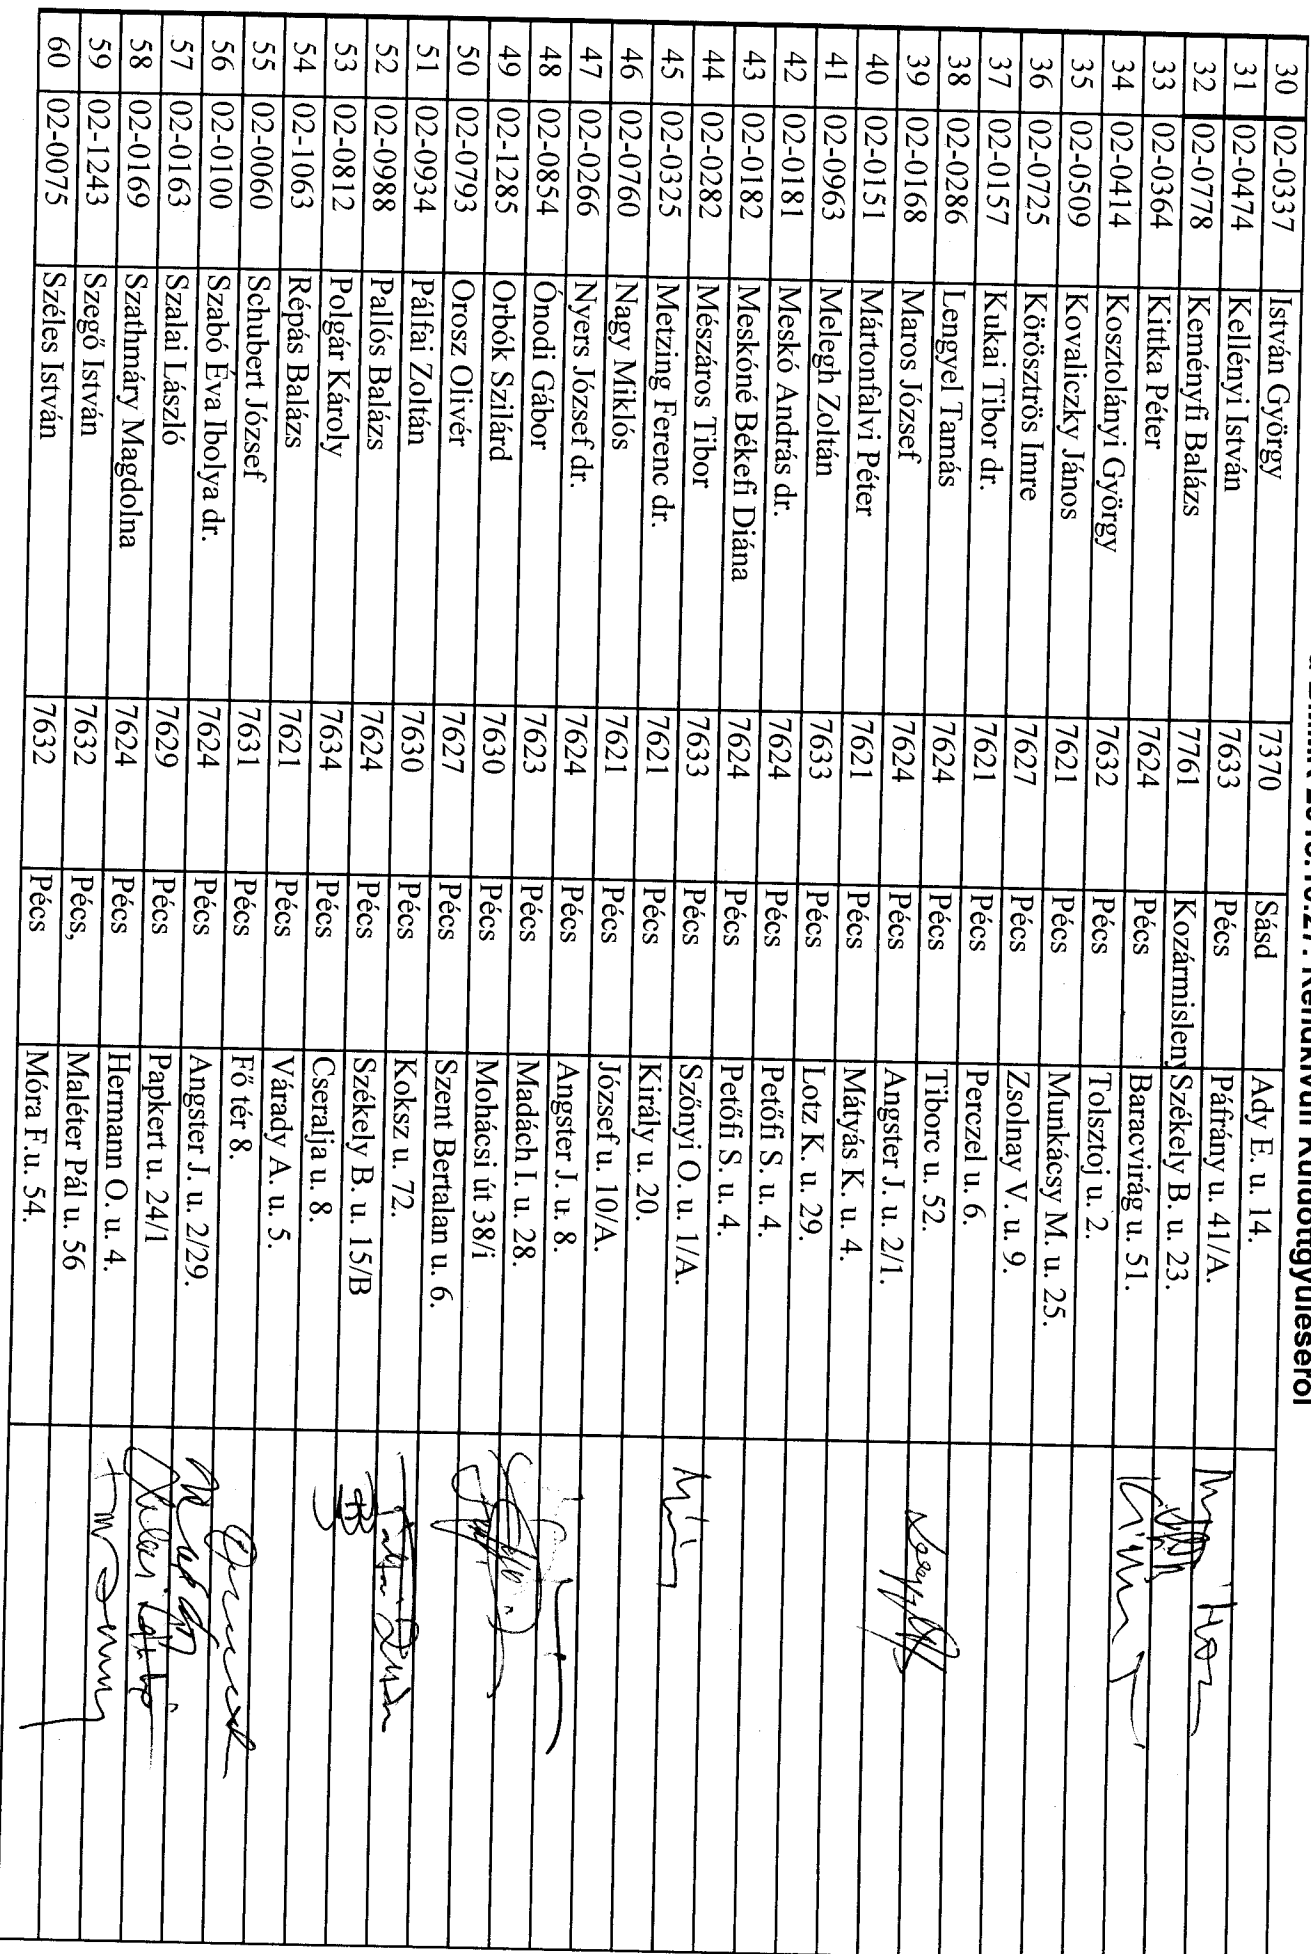 Rendkívüli Küldöttgyűléséről
30 02-0337 István György 7370 Sásd Ady E. u. 14.
31 02-0474 Kellényi István 7633 Pécs Páfrány u. 41/A.
32 02-0778 Keményfi Balázs 7761 Kozármisleny Székely B. u. 23.
33 02-0364 Kittka Péter 7624 Pécs Baracvirág u. 51.
34 02-0414 Kosztolányi György 7632 Pécs Tolsztoj u. 2.
35 02-0509 Kovaliczky János 7621 Pécs Munkácsy M. u. 25.
36 02-0725 Körösztrös Imre 7627 Pécs Zsolnay V. u. 9.
37 02-0157 Kukai Tibor dr. 7621 Pécs Perczel u. 6.
38 02-0286 Lengyel Tamás 7624 Pécs Tiborc u. 52.
39 02-0168 Maros József 7624 Pécs Angster J. u. 2/1.
40 02-0151 Mártonfalvi Péter 7621 Pécs Mátyás K. u. 4.
41 02-0963 Melegh Zoltán 7633 Pécs Lotz K. u. 29.
42 02-0181 Meskó András dr. 7624 Pécs Petőfi S. u. 4.
43 02-0182 Meskóné Békefi Diána 7624 Pécs Petőfi S. u. 4.
44 02-0282 Mészáros Tibor 7633 Pécs Szőnyi O. u. 1/A.
45 02-0325 Metzing Ferenc dr. 7621 Pécs Király u. 20.
46 02-0760 Nagy Miklós 7621 Pécs József u. 10/A.
47 02-0266 Nyers József dr. 7624 Pécs Angster J. u. 8.
48 02-0854 Ónodi Gábor 7623 Pécs Madách I. u. 28.
49 02-1285 Orbók Szilárd 7630 Pécs Mohácsi út 38/i
50 02-0793 Orosz Olivér 7627 Pécs Szent Bertalan u. 6.
51 02-0934 Pálfai Zoltán 7630 Pécs Koksz u. 72.
52 02-0988 Pallós Balázs 7624 Pécs Székely B. u. 15/B
53 02-0812 Polgár Károly 7634 Pécs Cseralja u. 8.
54 02-1063 Répás Balázs 7621 Pécs Várady A. u. 5.
55 02-0060 Schubert József 7631 Pécs Fő tér 8.
56 02-0100 Szabó Éva Ibolya dr. 7624 Pécs Angster J. u. 2/29.
57 02-0163 Szalai László 7629 Pécs Papkert u. 24/1
58 02-0169 Szathmáry Magdolna 7624 Pécs Hermann O. u. 4.
59 02-1243 Szegő István 7632 Pécs, Maléter Pál u. 56
60 02-0075 Széles István 7632 Pécs Móra F.u. 54.